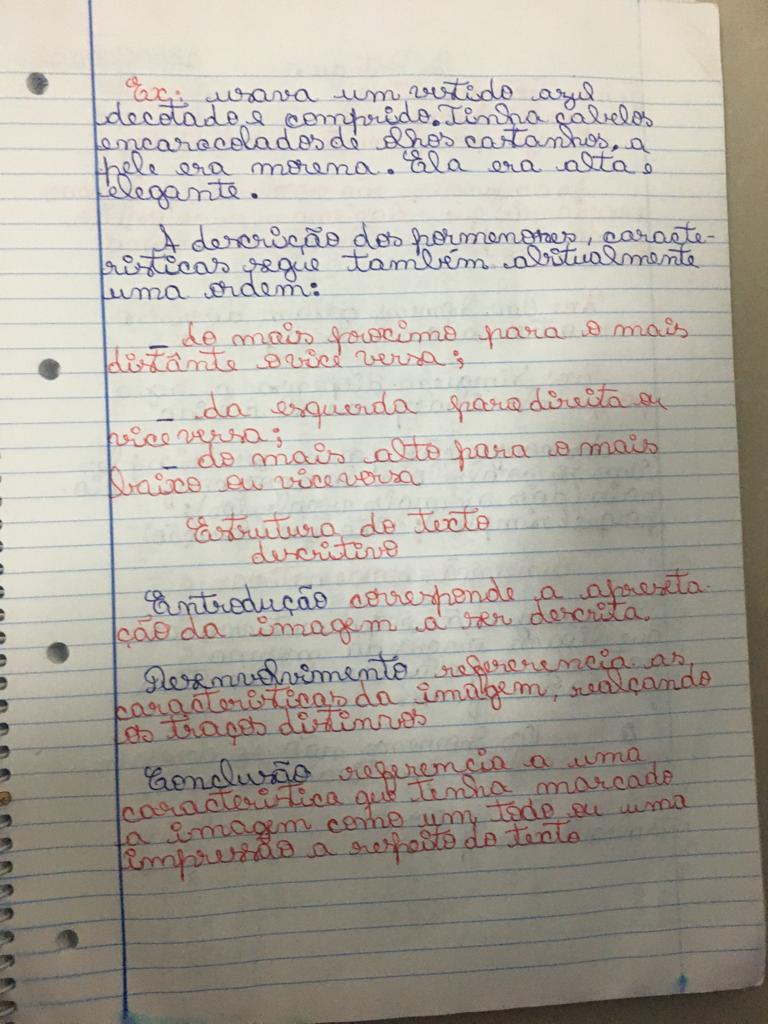 Ex: usava um vestido azul
decotado e comprido. Tinha cabelos
encaracolados de olhos castanhos, a
pele era morena. Ela era alta e
elegante.
A descrição dos pormenores, caracte-
risticas segue também abitualmente
uma ordem:
_ do mais procimo para o mais
distânte o vice versa;
_ da esquerda para direita ou
vice versa;
_ do mais alto para o mais
baixo ou vice versa
Estrutura do texto
descritivo
Entrodução corresponde a apreseta-
ção da imagem a ser descrita.
Desenvolvimento refererencia as
caracteristicas da imagem, realçando
os traços distinros
Conclusão referencia a uma
caracteristica que tenha marcado
a imagem como um todo ou uma
impressão a respeito do texto